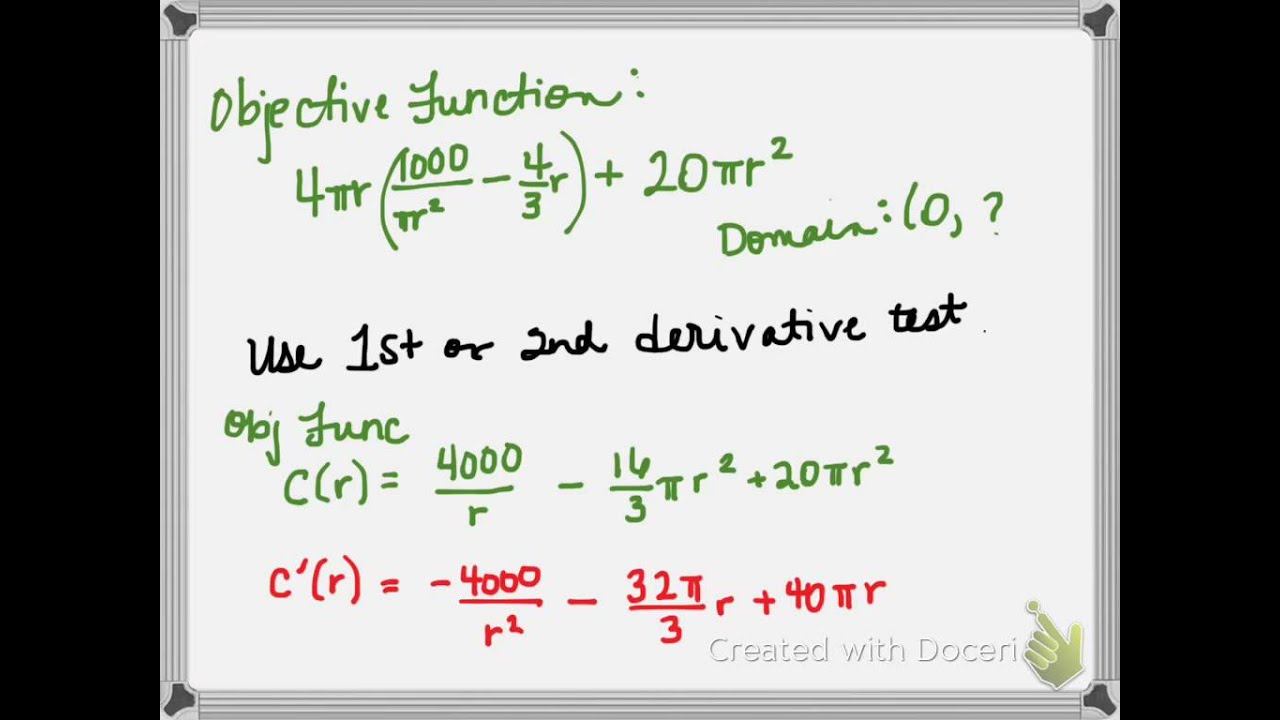 Objective Function:
4πr(1000/πr² − 4/3 r) + 20πr²
Domain: (0, ?
Use 1st or 2nd derivative test.
Obj Func
C(r) = 4000/r − 16/3 πr² + 20πr²
C'(r) = −4000/r² − 32π/3 r + 40πr
Created with Doceri